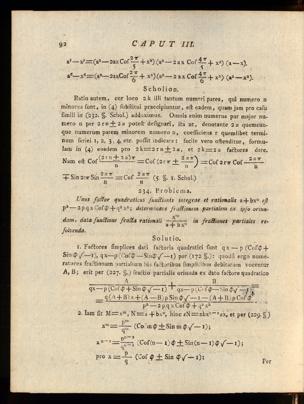 92 CAPUT III.
a⁵ — x⁵ = (a² — 2ax Cos 2π/5 + x²) (a² — 2ax Cos 4π/5 + x²) (a — x).
a⁶ — x⁶ = (a² — 2ax Cos 2π/6 + x²) (a² — 2ax Cos 4π/6 + x²) (a² — x²).
Scholion.
Ratio autem, cur loco 2k illi tantum numeri pares, qui numero n
minores sunt, in (4) substitui praecipiantur, est eadem, quam jam pro casu
simili in (232. §. Schol.) adduximus. Omnis enim numerus par major nu-
mero n per 2rn ± 2a potest designari, ita ut, denotante 2a quemcun-
que numerum parem minorem numero n, coefficiens r quemlibet termi-
num seriei 1, 2, 3, 4 etc. possit indicare: facile vero ostenditur, formu-
lam in (4) eandem pro 2k = 2rn ± 2a, et 2k = 2a factorem dare.
Nam est Cos (2rn ± 2a)π/n = Cos (2rπ ± 2aπ/n) = Cos 2rπ Cos 2aπ/n
∓ Sin 2rπ Sin 2aπ/n = Cos 2aπ/n (5. §. 1. Schol.)
234. Problema.
Unus factor quadraticus functionis integrae et rationalis a + bxⁿ est
p² — 2pqx Cos φ + q²x²; determinare fractionem partialem ex ipso oriun-
dam, data functione fracta rationali xᵐ/(a + bxⁿ) in fractiones partiales re-
solvenda.
Solutio.
1. Factores simplices dati factoris quadratici sunt qx — p (Cos φ +
Sin φ √—1), qx — p (Cos φ — Sin φ √—1) per (172 §.): quodsi ergo nume-
ratores fractionum partialium his factoribus simplicibus debitarum vocentur
A, B; erit per (227. §.) fractio partialis oriunda ex dato factore quadratico
A/(qx — p (Cos φ + Sin φ √—1)) + B/(qx — p (Cos φ — Sin φ √—1))
2. Jam sit M = xᵐ, N = a + bxⁿ, hinc
xᵐ = pᵐ/qᵐ (Cos m φ ± Sin m φ √—1);
xⁿ⁻¹ = pⁿ⁻¹/qⁿ⁻¹ (Cos (n — 1) φ ± Sin (n — 1) φ √—1);
pro x = p/q (Cos φ ± Sin φ √—1);
Per